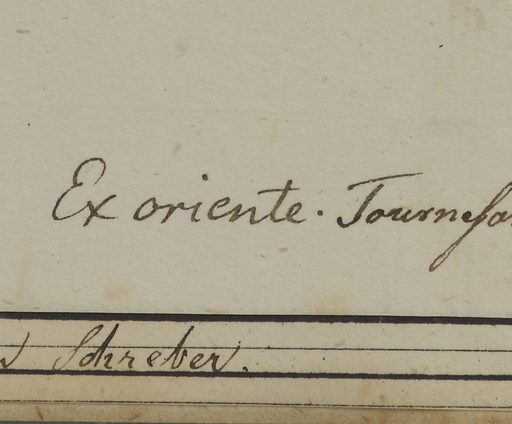 Ex oriente. Tournefo
Schreber.